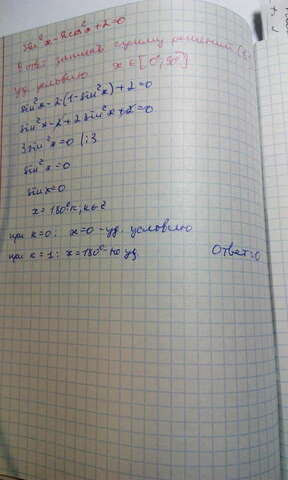 sin²x-2cos²x+2=0
В ответ запишите сумму решений (°),
уд. условию x ∈ [0°; 90°]
sin²x-2·(1-sin²x)+2=0
sin²x-2+2sin²x+2=0
3sin²x=0 |:3
sin²x=0
sinx=0
x=180°k, k∈Z
при k=0: x=0 - уд. условию
при k=1: x=180° не уд. Ответ: 0